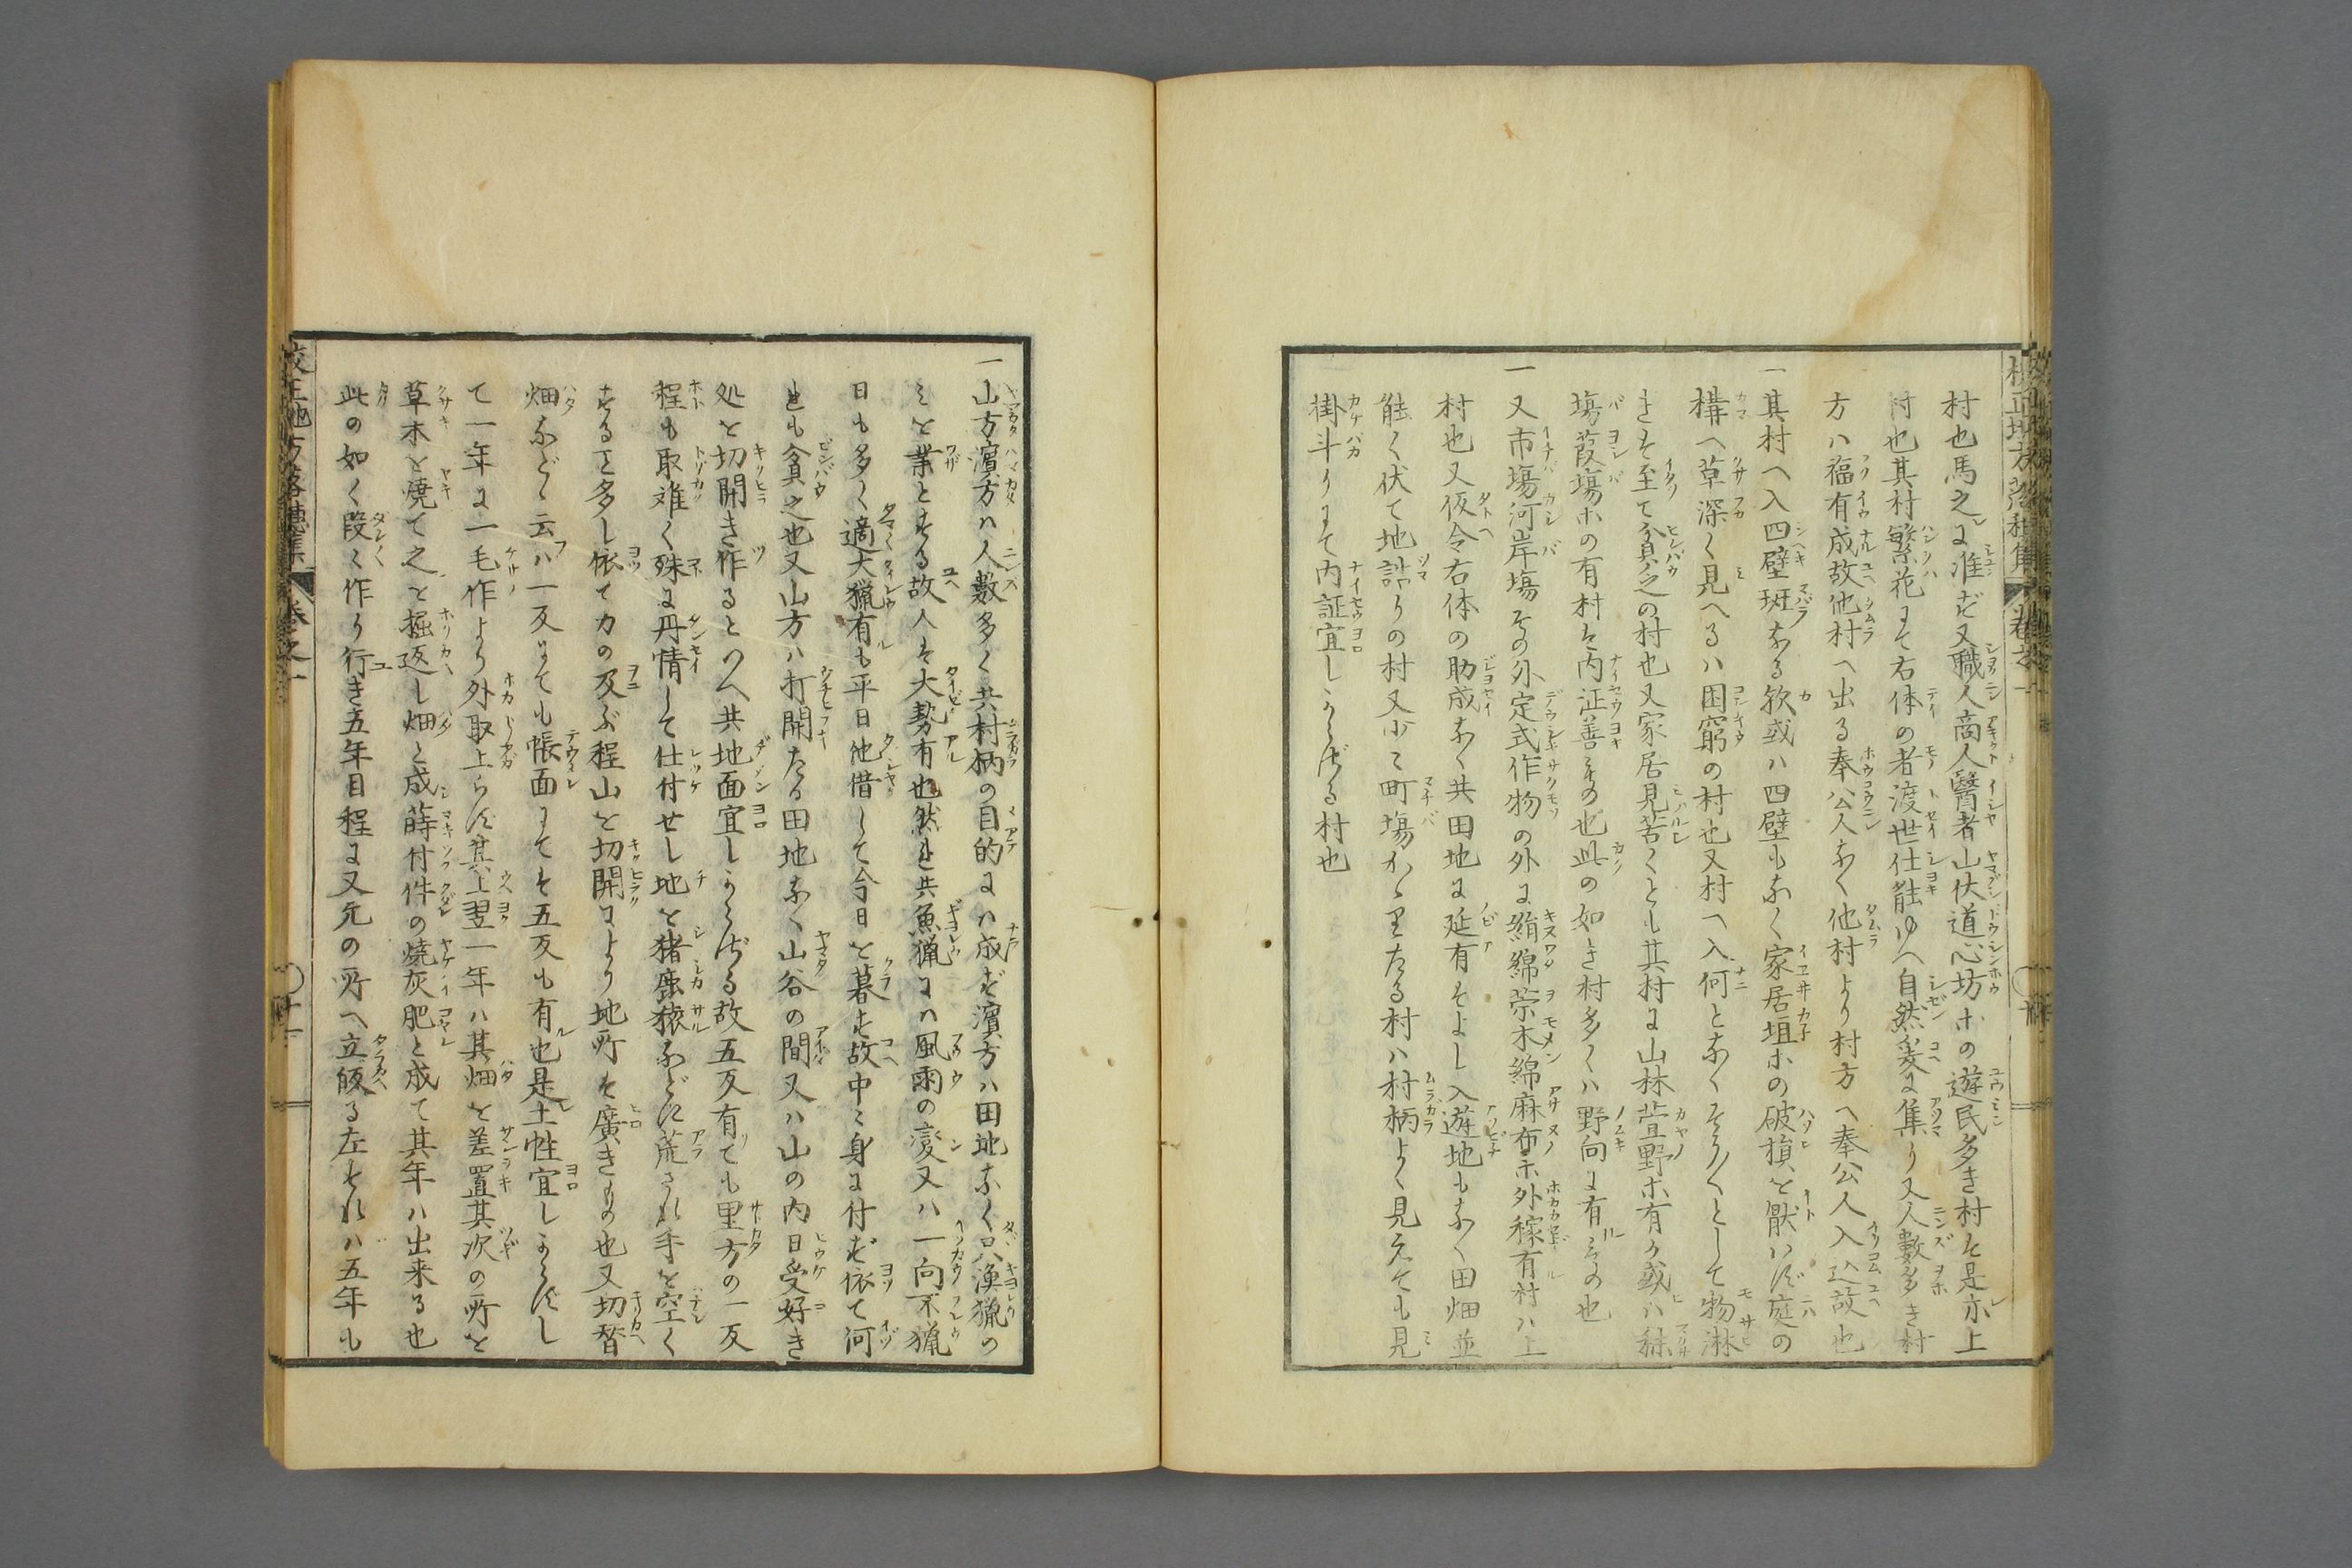 村也馬之に准ず又職人商人醫者山伏道心坊ホの遊民多き村を是亦上
村也其村繁花にて右体の者渡世仕能ゆへ自然爰に集り又人數多き村
方ハ福有成故他村へ出る奉公人なく他村より村方へ奉公人入込故也
一其村へ入四壁斑なる欤或ハ四壁もなく家居垣ホの破損を厭ハず庭の
構へ草深く見へるハ困窮の村也又村へ入何となくそう〳〵として物淋
しきを至て貧乏の村也又家居見苦くとも其村に山林萱野ホ有か或ハ秣
塲葭塲ホの有村を内証善もの也此の如き村多くハ野向に有もの也
一又市塲河岸塲その外定式作物の外に絹綿苧木綿麻布ホ外稼有村ハ上
村也又仮令右体の助成なく共田地に延有をよし入遊地もなく田畑並
能く伏て地詰りの村又少々町塲かゝりたる村ハ村柄よく見えても見
掛斗りにて内証宜しからざる村也
一山方濱方ハ人數多く共村柄の目的にハ成ず濱方ハ田地なく只漁猟の
ミを業とする故人を大勢有也然共魚猟にハ風雨の変又ハ一向不猟
日も多く適大猟有も平日他借して今日を暮す故中々身に付ず依て何
れも貧乏也又山方ハ打開たる田地なく山谷の間又ハ山の内日受好き
処を切開き作るといへ共地面宜しからざる故五反有ても里方の一反
程も取難く殊に丹情して仕付せし地を猪鹿猿などに荒され手を空く
すると多し依て力の及ぶ程山を切開により地所を廣きもの也又切替
畑など云ハ一反にても帳面にてを五反も有也是土性宜しからずし
て一年に一毛作より外取上らず其上翌一年ハ其畑を差置其次の所を
草木を焼て之を掘返し畑と成蒔付件の焼灰肥と成て其年ハ出来る也
此の如く段々作り行き五年目程に又元の所へ立皈る左すれハ五年も
校正地方落穂集 巻之一